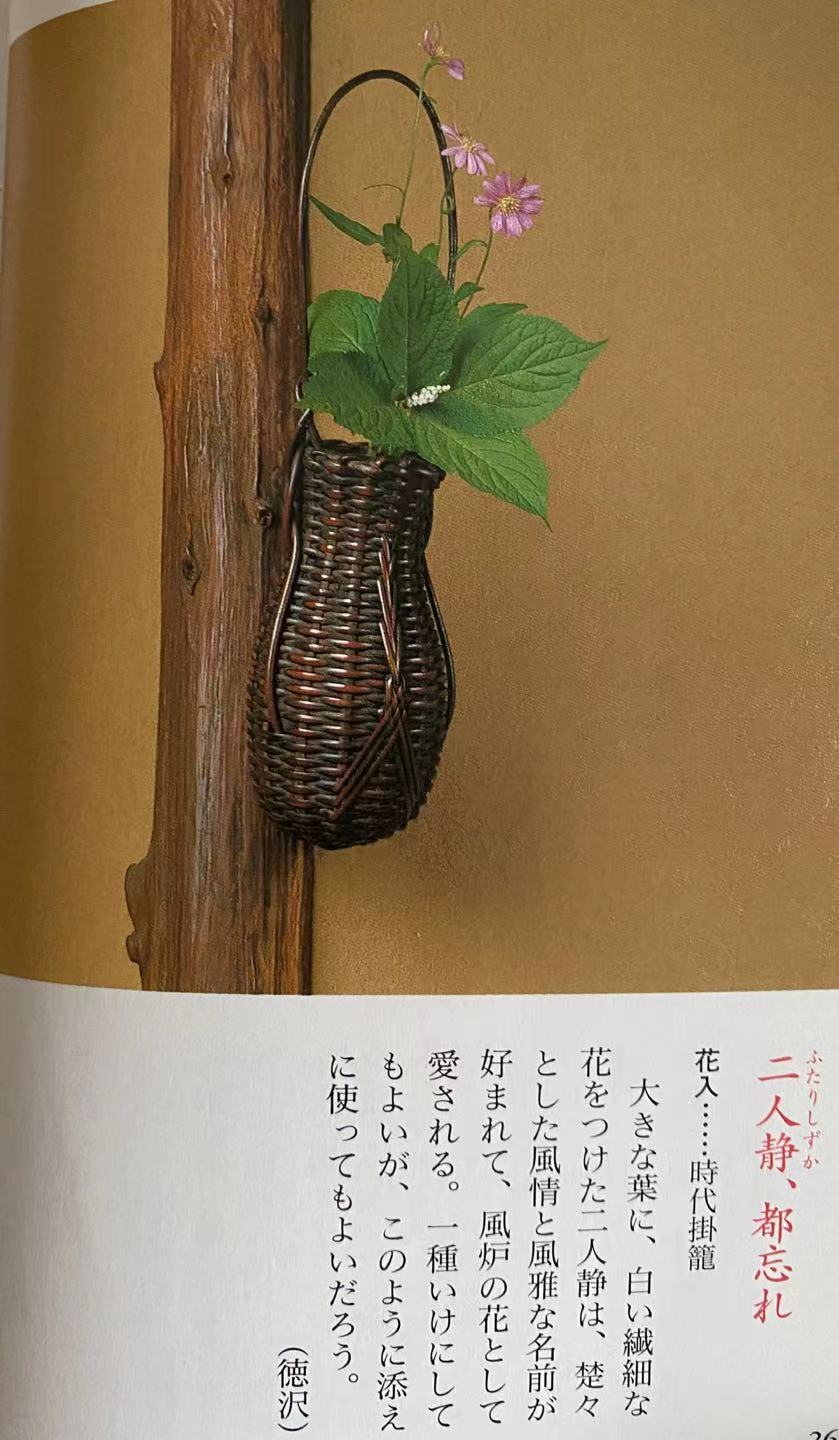 二人静、都忘れ
ふたりしずか
花入……時代掛籠
大きな葉に、白い繊細な
花をつけた二人静は、楚々
とした風情と風雅な名前が
好まれて、風炉の花として
愛される。一種いけにして
もよいが、このように添え
に使ってもよいだろう。
（徳沢）